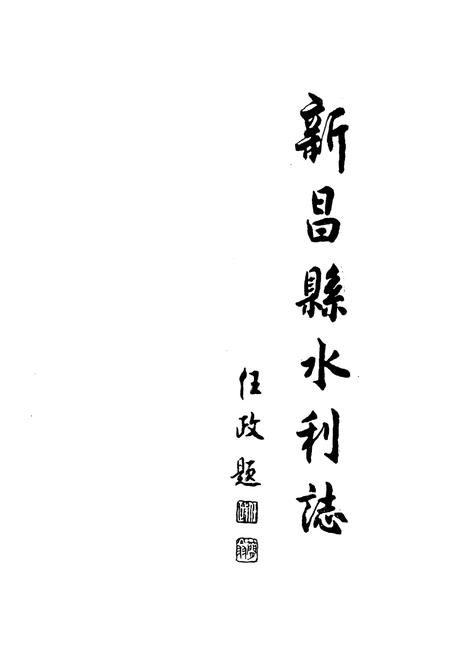 新昌縣水利誌
任政題